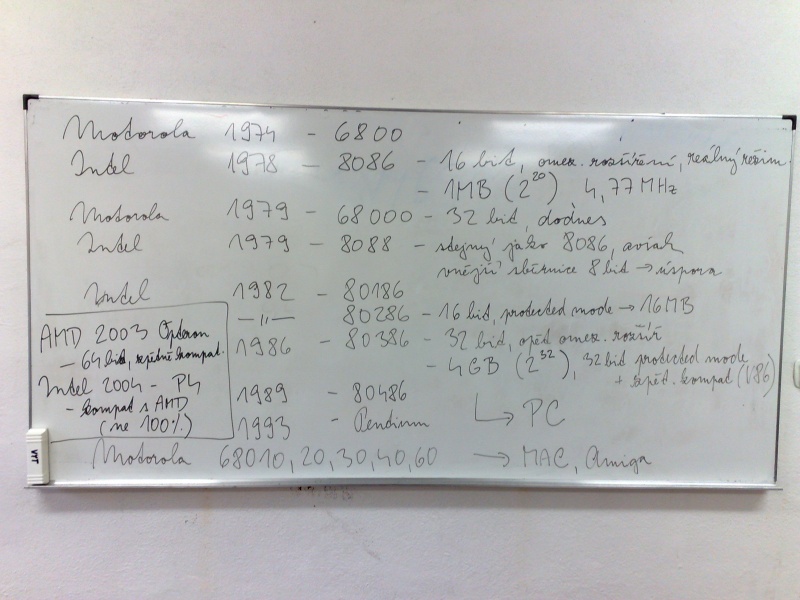 Motorola 1974 - 6800
Intel 1978 - 8086 - 16 bit, omez. rozšíření, reálný režim
- 1MB (2^20) 4,77 MHz
Motorola 1979 - 68000 - 32 bit, dodnes
Intel 1979 - 8088 - stejný jako 8086, avšak
vnější sběrnice 8 bit → úspora
Intel 1982 - 80186
—"— 80286 - 16 bit, protected mode → 16MB
1986 - 80386 - 32 bit, opět omez. rozšíř
- 4GB (2^32), 32 bit protected mode
+ zpět. kompat (V86)
1989 - 80486
→ PC
1993 - Pentium
AMD 2003 Opteron
- 64 bit, zpětně kompat.
Intel 2004 - P4
- kompat s AMD
(ne 100%)
Motorola 68010, 20, 30, 40, 60 → MAC, Amiga
VIT